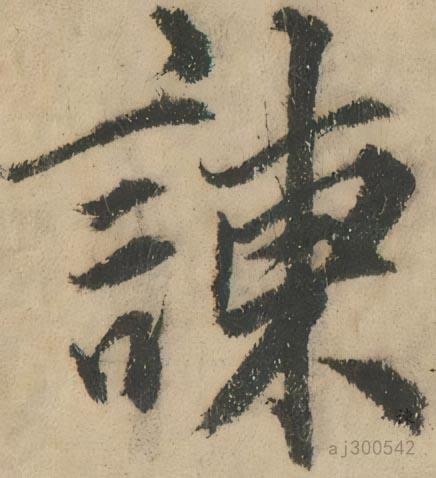 諫
aj300542